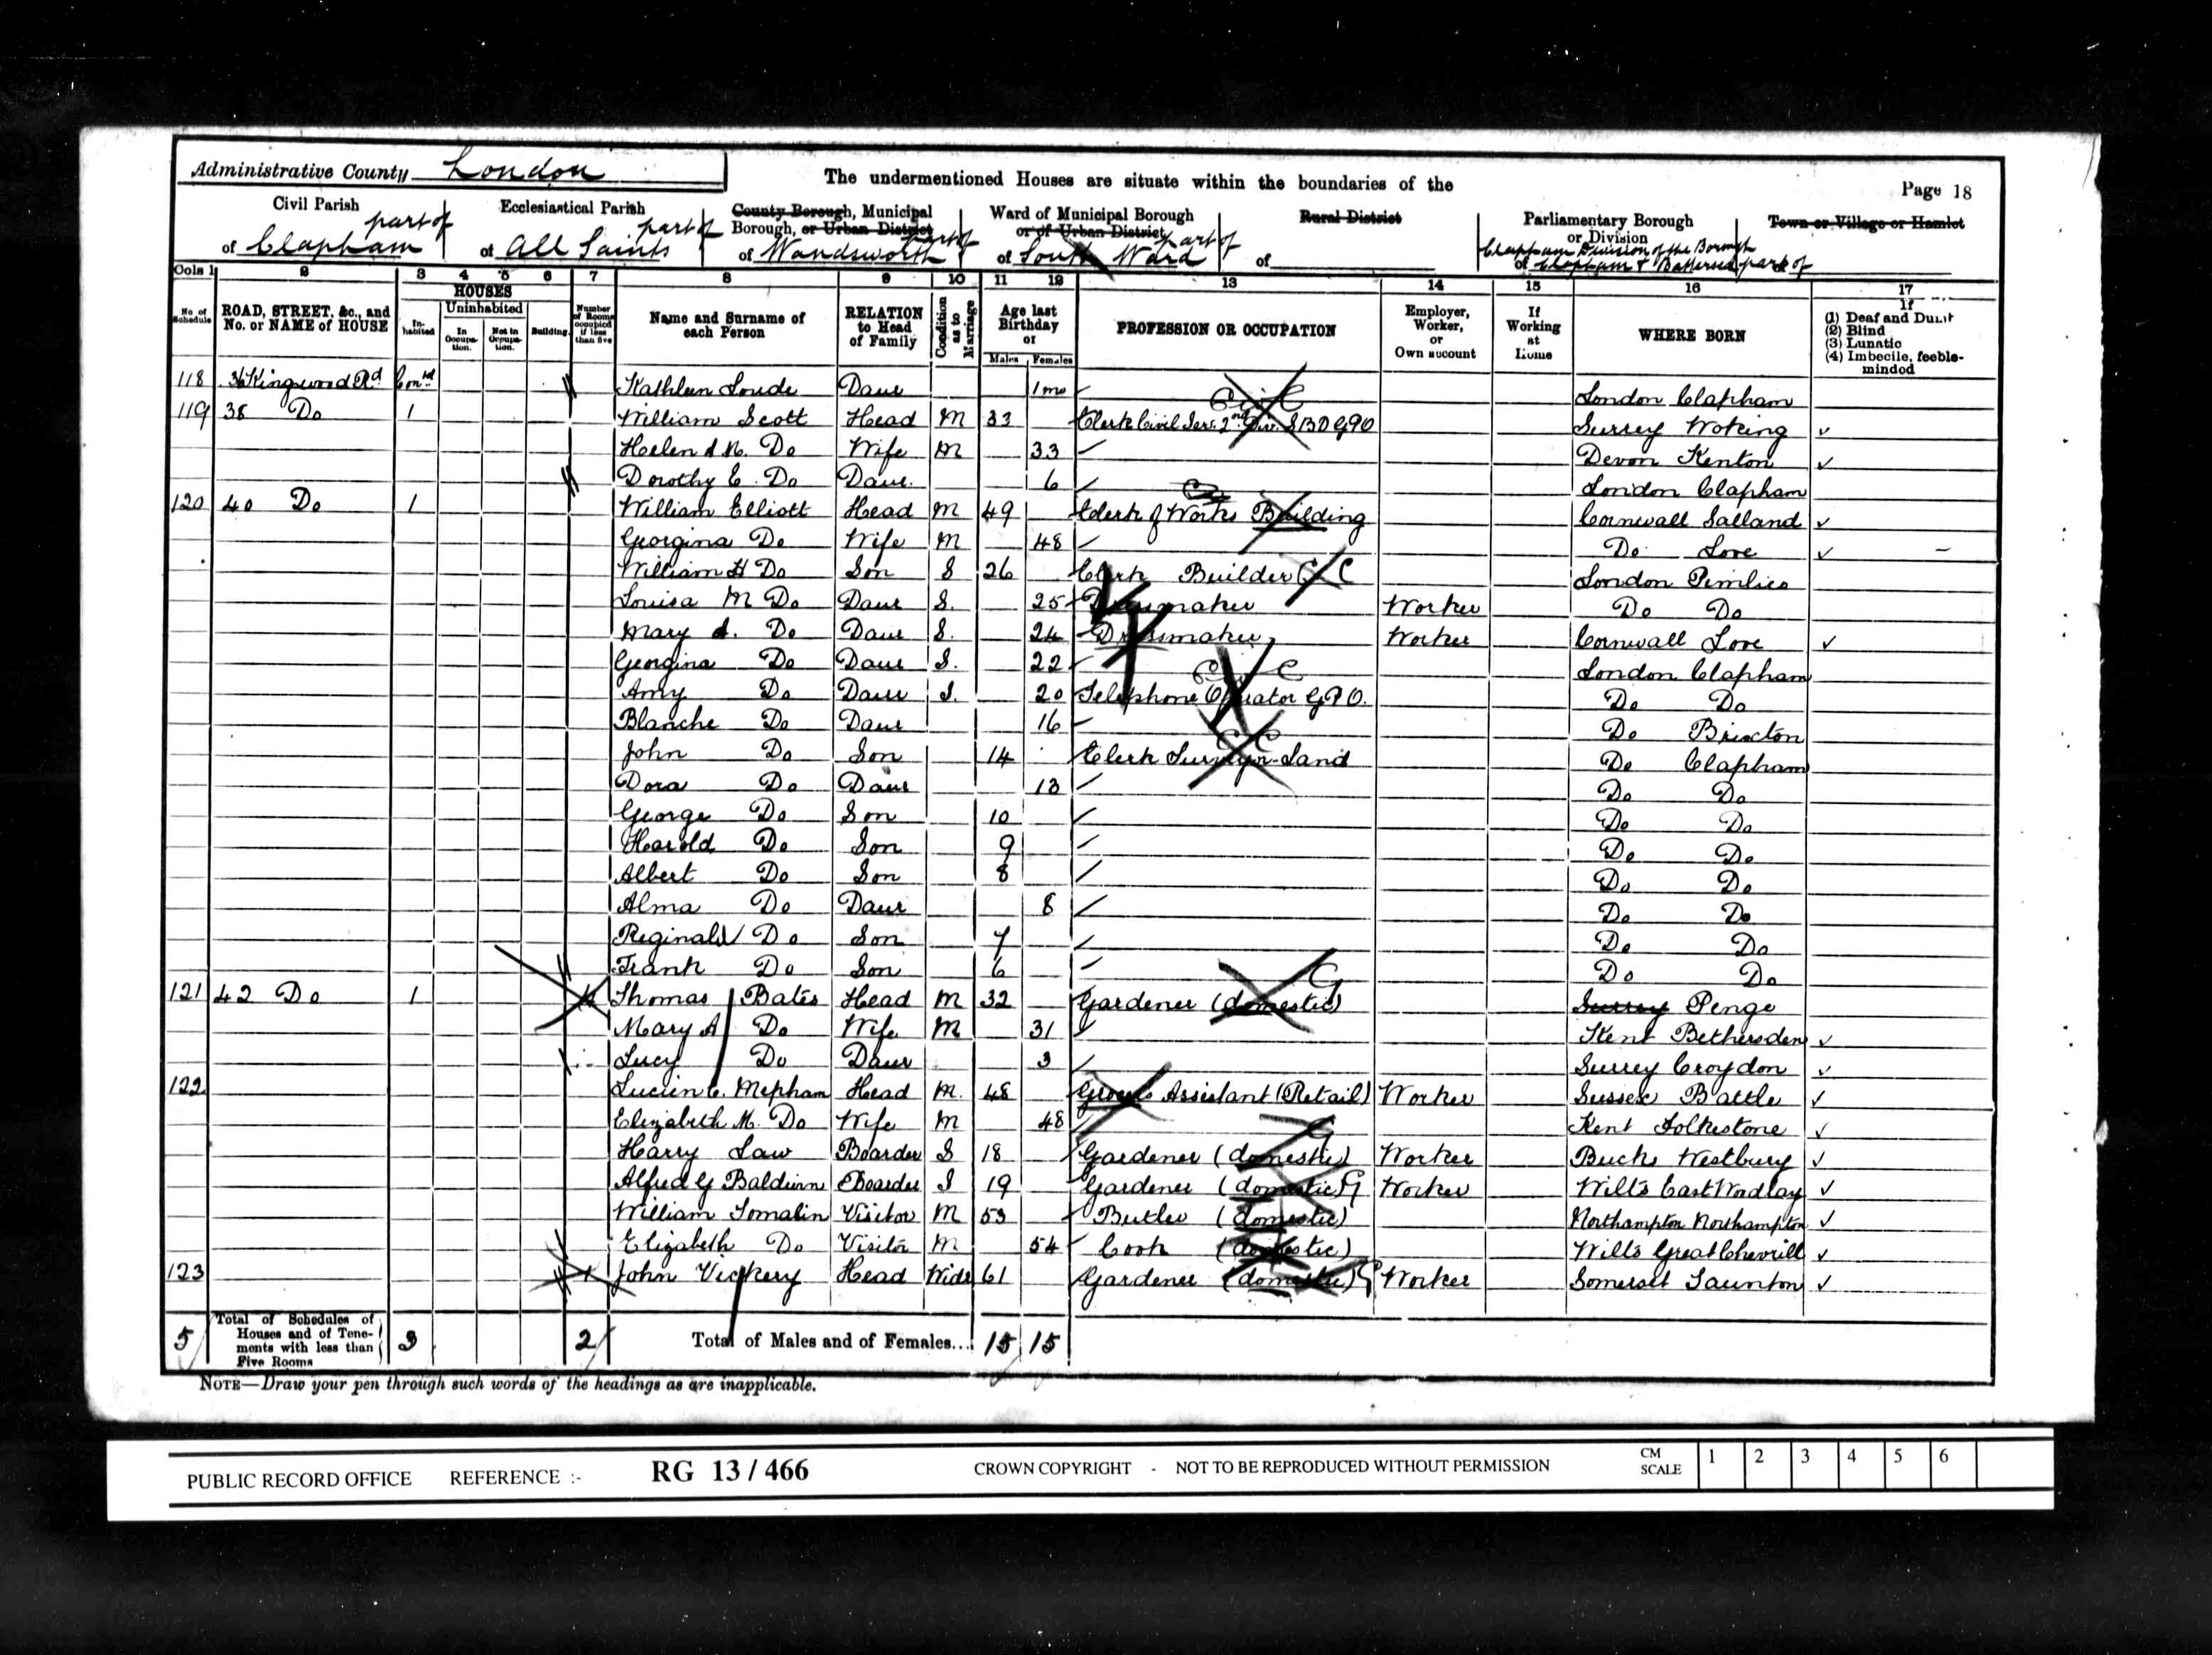 Administrative County London
The undermentioned Houses are situate within the boundaries of the
Page 18
Civil Parish
part of
of Clapham
Ecclesiastical Parish
part of
of All Saints
County Borough, Municipal
Borough, or Urban District
part of
of Wandsworth
Ward of Municipal Borough
or of Urban District
part of
of South Ward
Rural District
of
Parliamentary Borough
or Division
Clapham Division of the Borough
of Clapham & Battersea part of
Town or Village or Hamlet
Cols 1 2 3 4 5 6 7 8 9 10 11 12 13 14 15 16 17
No of Schedule
ROAD, STREET, &c., and No. or NAME of HOUSE
HOUSES
In-habited
Uninhabited
In Occupa-tion.
Not in Occupa-tion.
Building.
Number of Rooms occupied if less than five
Name and Surname of each Person
RELATION to Head of Family
Condition as to Marriage
Age last Birthday of
Males Females
PROFESSION OR OCCUPATION
Employer, Worker, or Own account
If Working at Home
WHERE BORN
If
(1) Deaf and Dumb
(2) Blind
(3) Lunatic
(4) Imbecile, feeble-minded
118 36 Kingswood Rd Contd Kathleen Daur 1mo London Clapham
119 38 Do 1 William Scott Head M 33 Clerk Civil Serv. 2nd Div. SBD GPO Surrey Woking
Helen Do Wife M 33 Devon Kenton
Dorothy E. Do Daur. 6 London Clapham
120 40 Do 1 William Elliott Head M 49 Clerk of Works Building Cornwall Salland
Georgina Do Wife M 48 Do Looe
William H Do Son S 26 Clerk Builder C C London Pimlico
Louisa M Do Daur S. 25 Dressmaker Worker Do Do
Mary Do Daur S. 24 Dressmaker Worker Cornwall Looe
Georgina Do Daur S. 22 London Clapham
Amy Do Daur S. 20 Telephone Operator G.P.O. Do Do
Blanche Do Daur 16 Do Brixton
John Do Son 14 Clerk Surveyor-Land Do Clapham
Dora Do Daur 13 Do Do
George Do Son 10 Do Do
Harold Do Son 9 Do Do
Albert Do Son 8 Do Do
Alma Do Daur 8 Do Do
Reginald Do Son 7 Do Do
Frank Do Son 6 Do Do
121 42 Do 1 4 Thomas Bates Head M 32 Gardener (domestic) G Surrey Penge
Mary A Do Wife M 31 Kent Bethersden
Lucy Do Daur 3 Surrey Croydon
122 Lucien C. Mepham Head M. 48 Grocers Assistant (Retail) Worker Sussex Battle
Elizabeth M. Do Wife M 48 Kent Folkestone
Harry Law Boarder S 18 Gardener (domestic) Worker Bucks Westbury
Alfred G Baldwin Boarder S 19 Gardener (domestic) G Worker Wilts East
William Tomalin Visitor M 53 Butler (domestic) Northampton Northampton
Elizabeth Do Visitor M 54 Cook (domestic) Wilts Great Cheverill
123 1 John Vickery Head Widr 61 Gardener (domestic) G Worker Somerset Taunton
5 Total of Schedules of Houses and of Tene-ments with less than Five Rooms 3 2 Total of Males and of Females... 15 15
NOTE—Draw your pen through such words of the headings as are inapplicable.
PUBLIC RECORD OFFICE REFERENCE :- RG 13 / 466 CROWN COPYRIGHT - NOT TO BE REPRODUCED WITHOUT PERMISSION CM SCALE 1 2 3 4 5 6